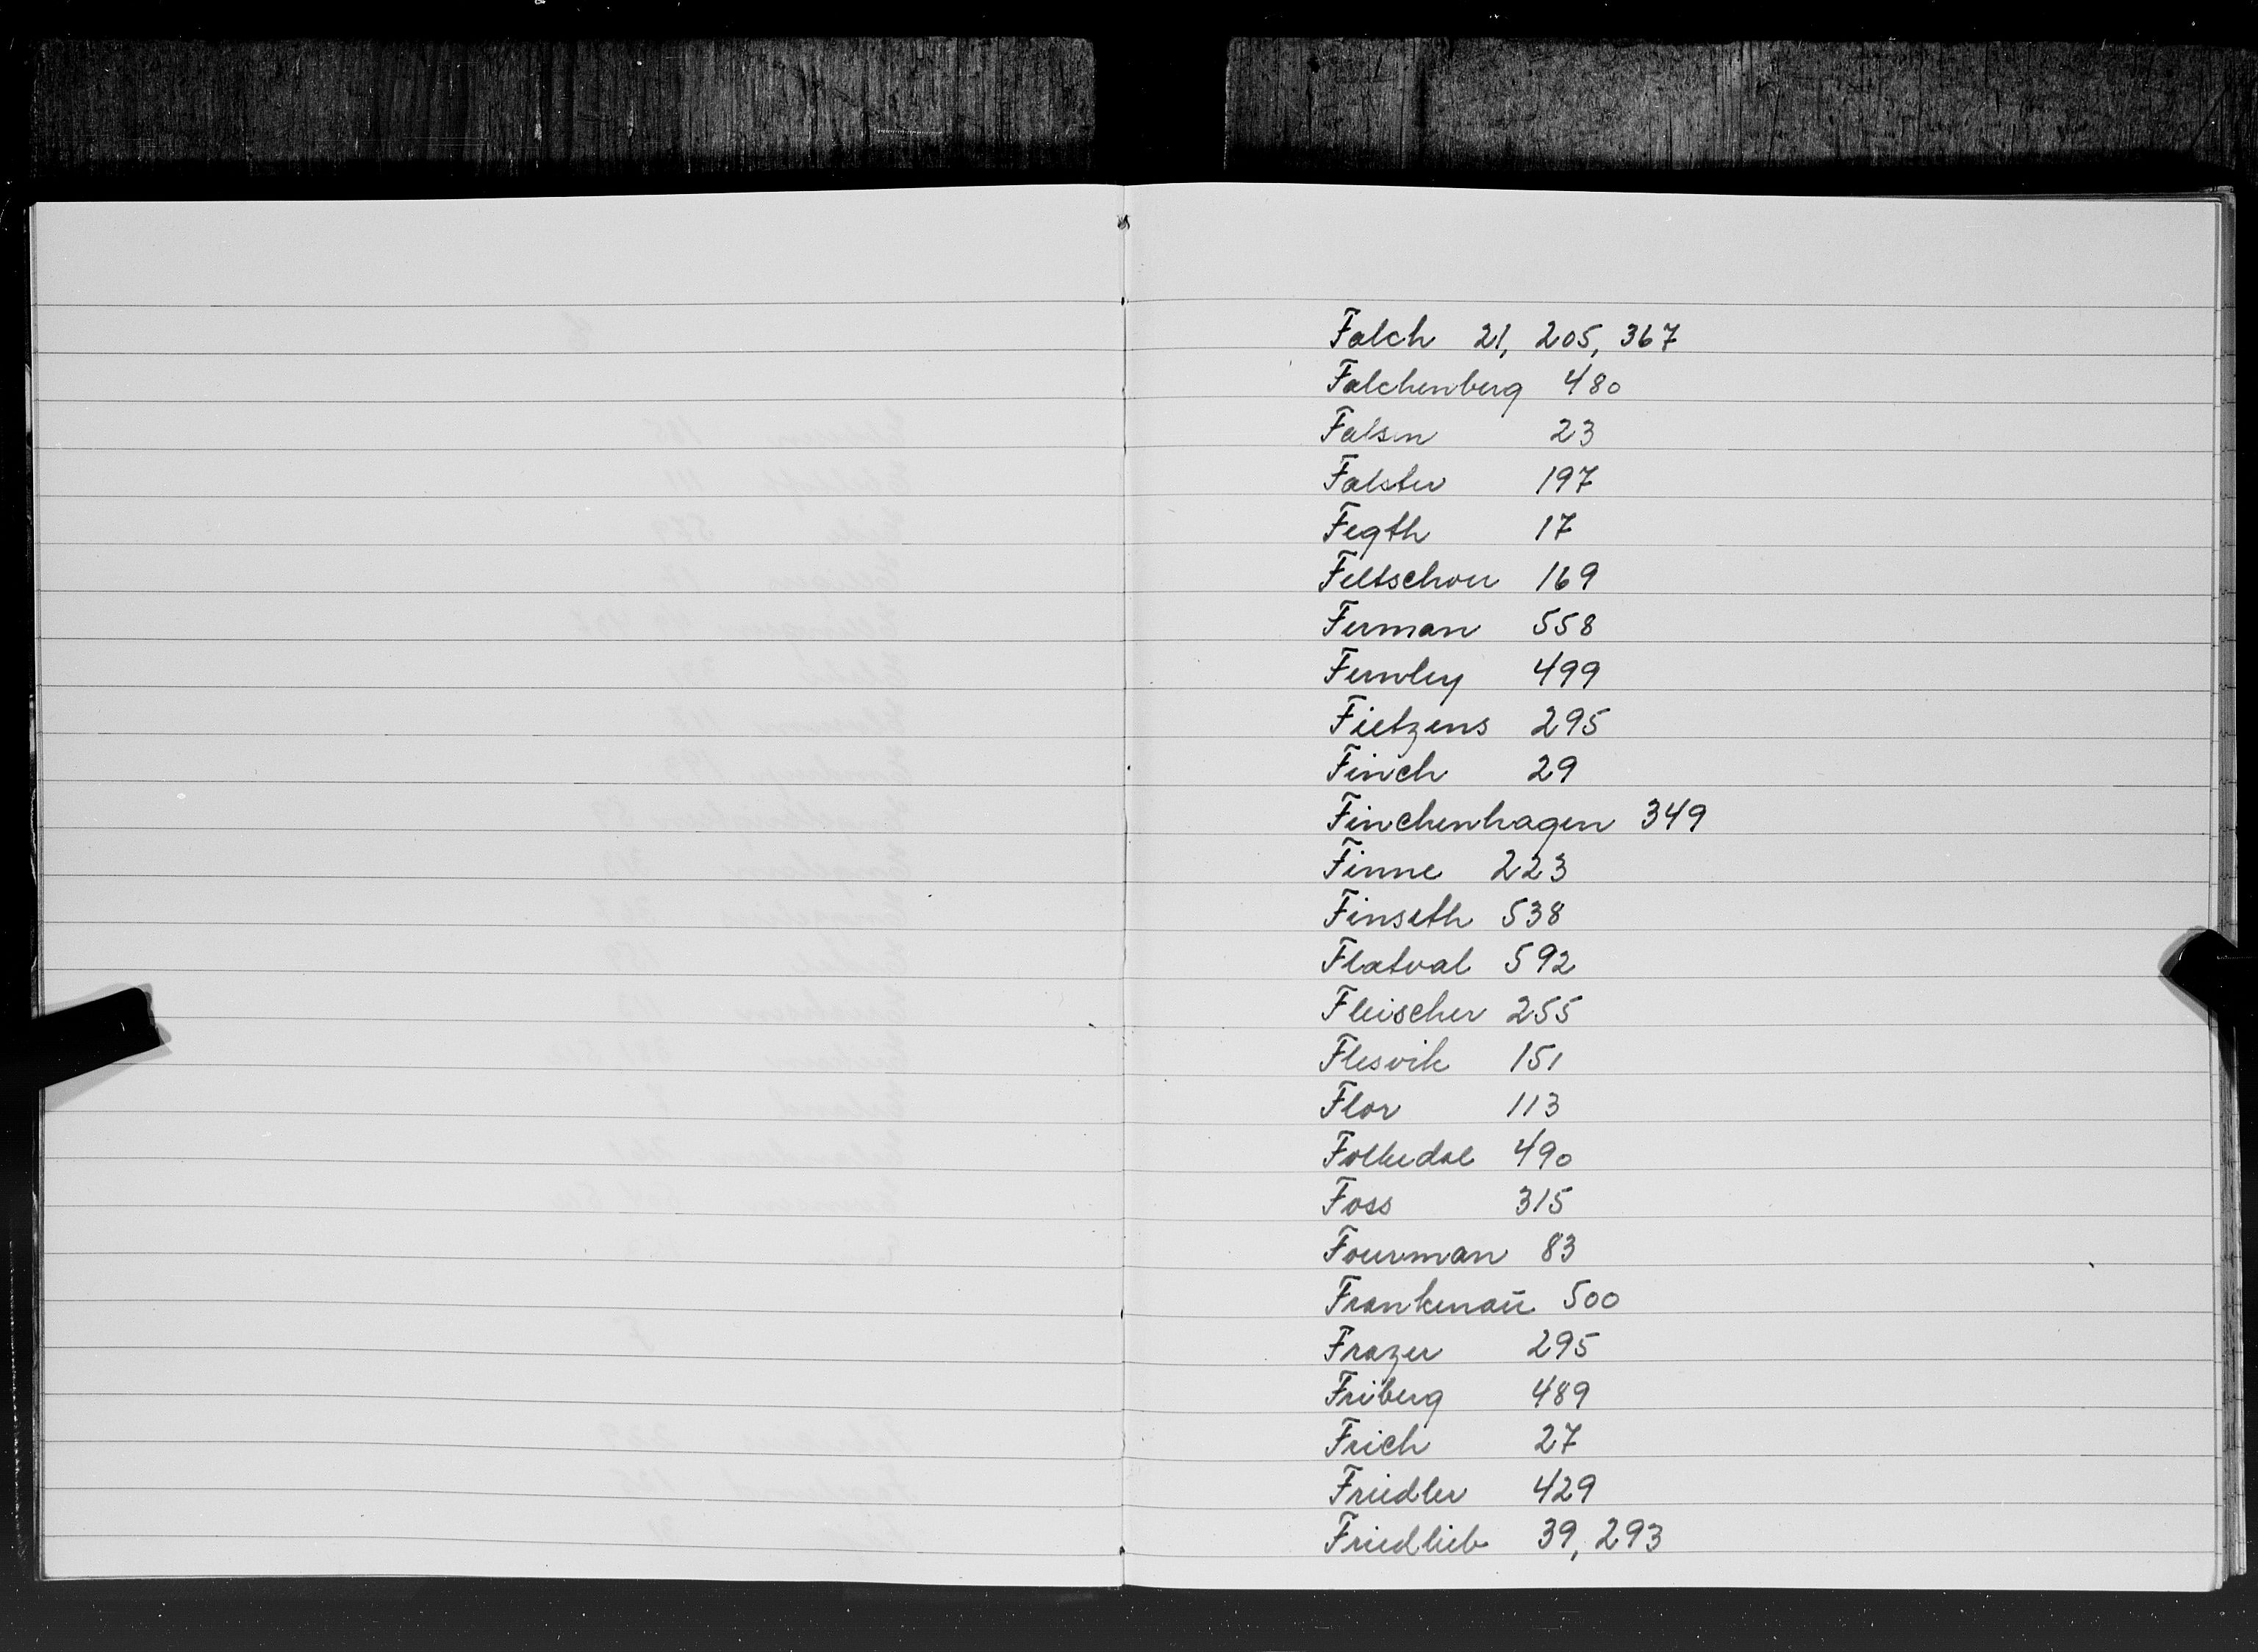 Falch 21, 205, 367
Falchenberg 480
Falsen 23
Falster 197
Fegth 17
Feltschou 169
Ferman 558
Fernley 499
Fietzens 295
Finch 29
Finchenhagen 349
Finne 223
Finseth 538
Flatval 592
Fleischer 255
Flesvik 151
Flor 113
Folkedal 490
Foss 315
Fourman 83
Frankenaū 500
Frazer 295
Friberg 489
Frich 27
Friedler 429
Friedlieb 39, 293